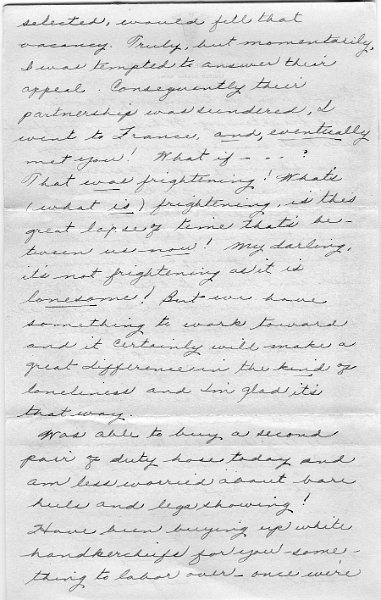 selected, would fill that
vacancy. Truly, but momentarily,
I was tempted to answer their
appeal. Consequently their
partnership was sundered, I
went to France, and, eventually
met you! What if - - - ?
That was frightening! What's
(what is) frightening, is this
great lapse of time that's be-
tween us - now! My darling,
it's not frightening as it is
lonesome! But we have
something to work toward
and it certainly will make a
great difference in the kind of
loneliness and I'm glad it's
that way.
Was able to buy a second
pair of duty hose today and
am less worried about bare
heels and legs showing!
Have been buying up white
handkerchiefs for you - some-
thing to labor over - once we're